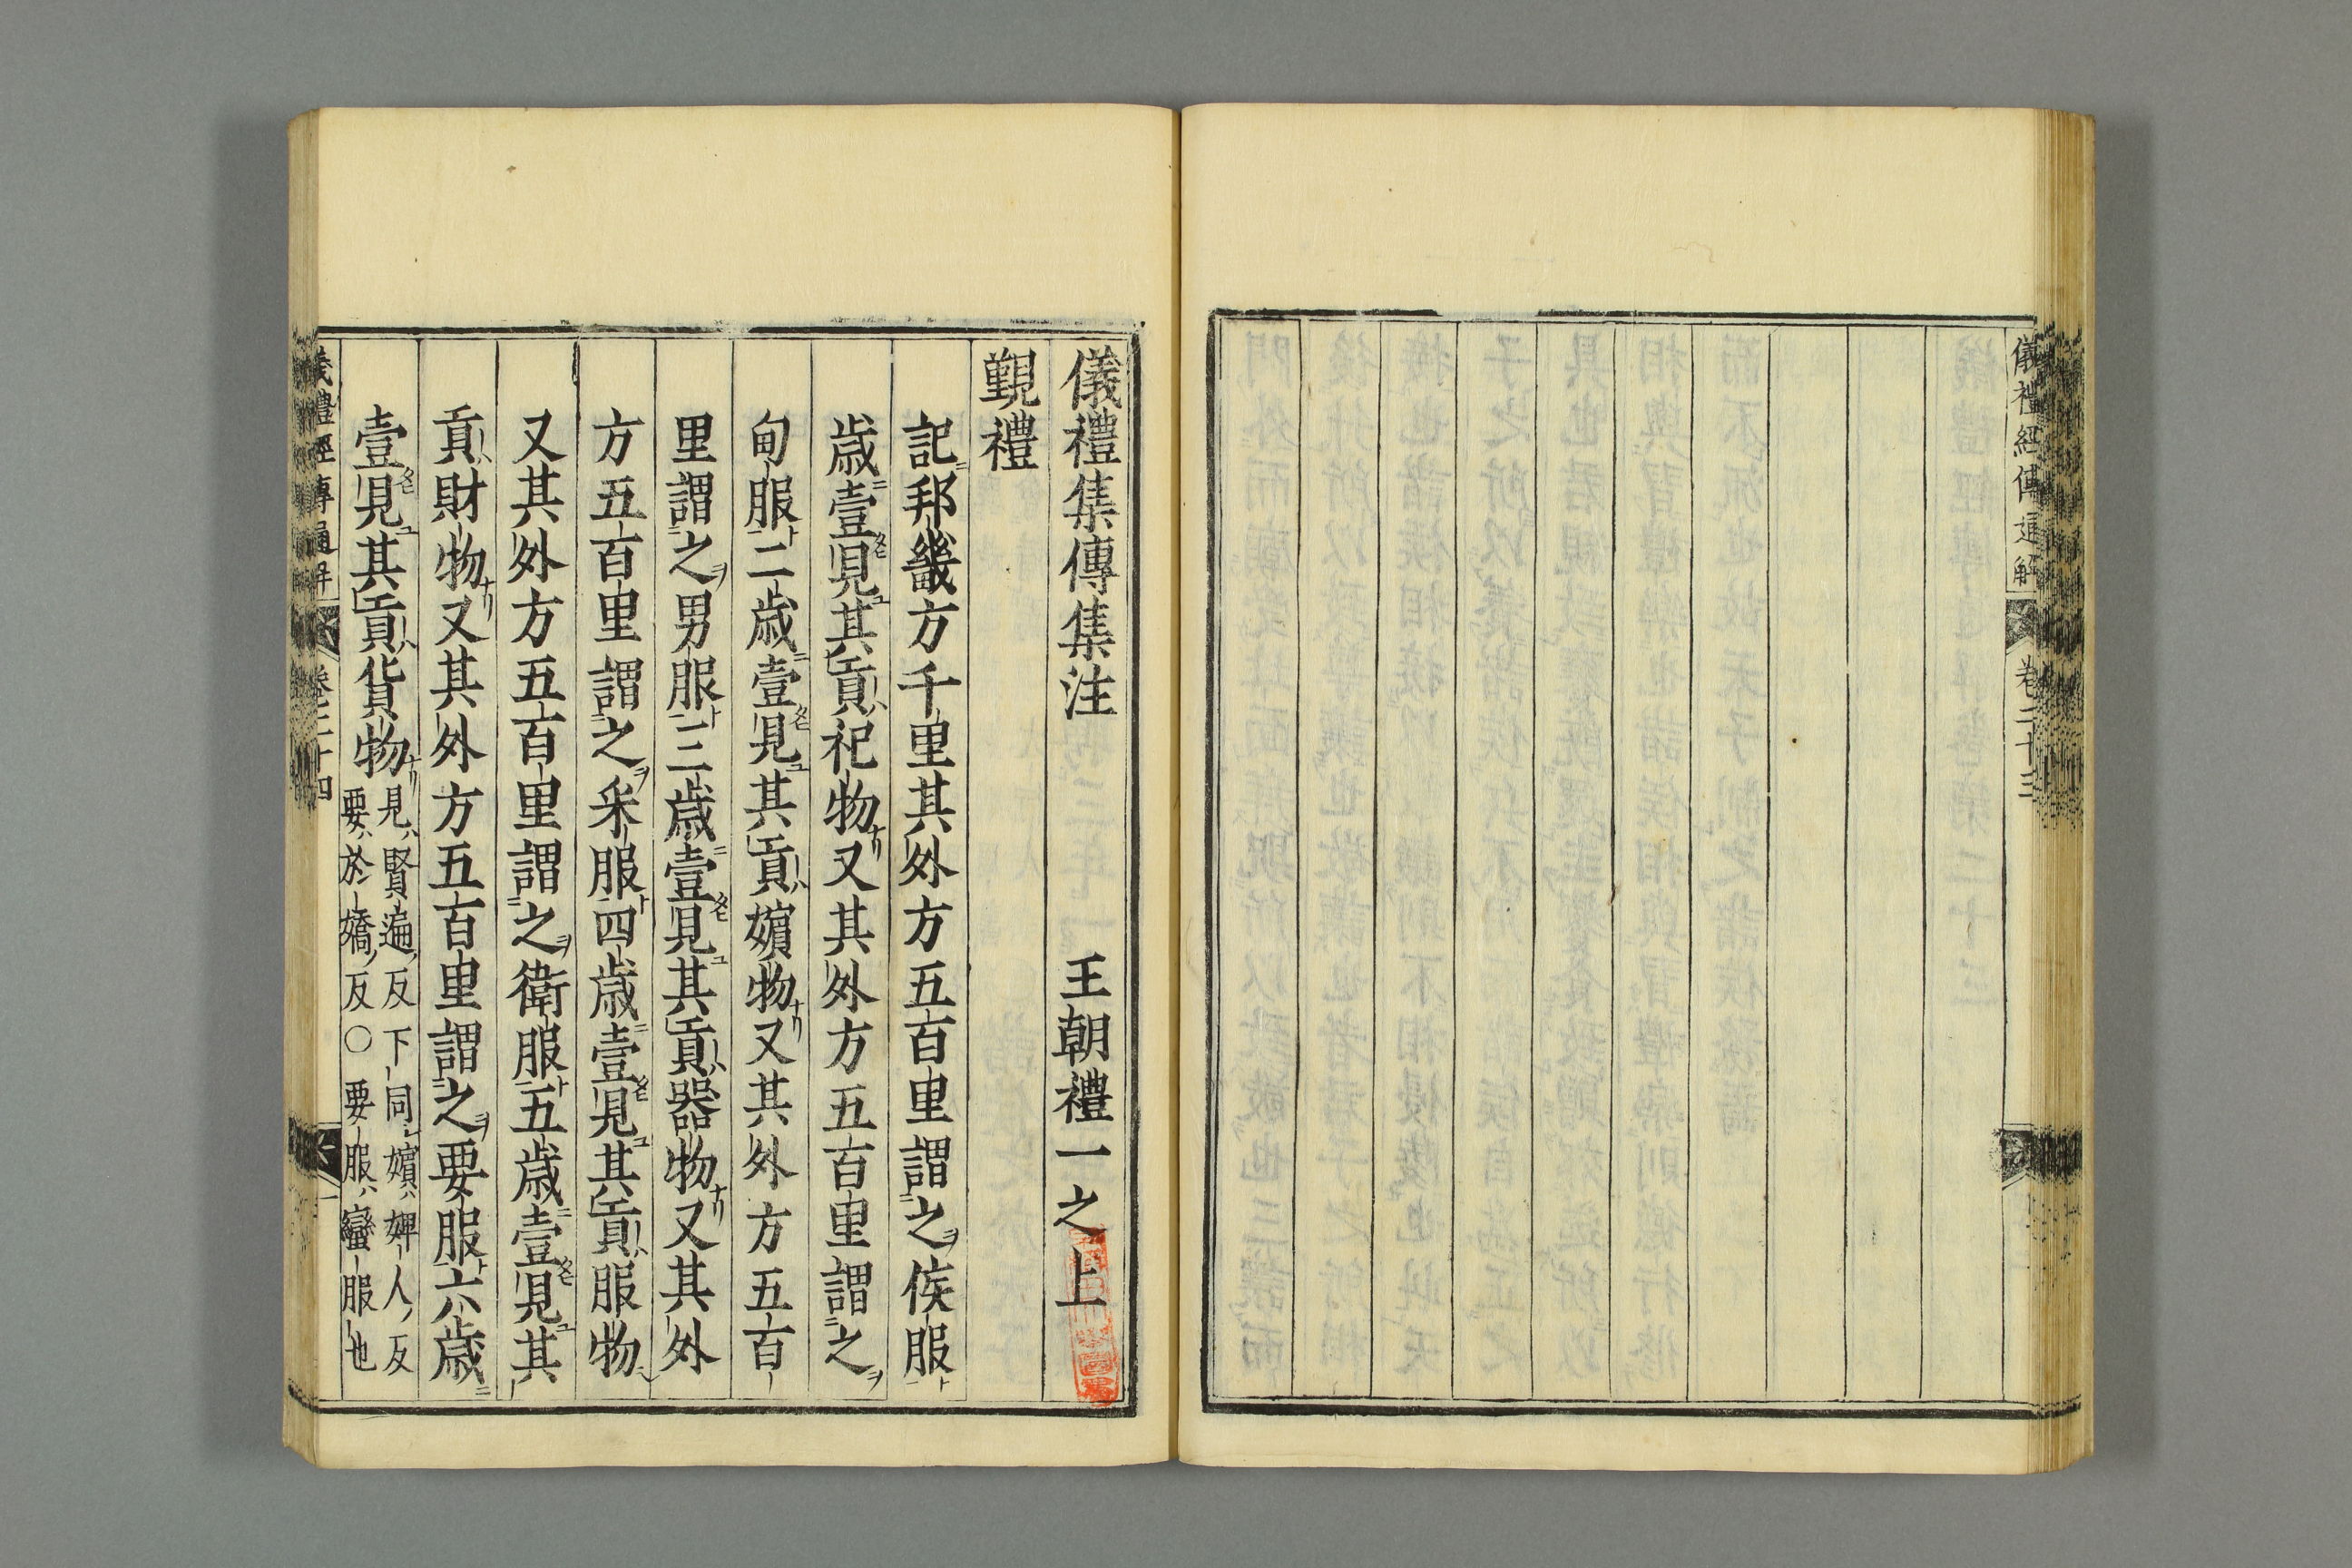 儀禮經傳通解 卷二十三
儀禮集傳集注 王朝禮一之上
覲禮
記邦畿方千里其外方五百里謂之侯服
歲壹見其貢祀物又其外方五百里謂之
甸服二歲壹見其貢嬪物又其外方五百
里謂之男服三歲壹見其貢器物又其外
方五百里謂之采服四歲壹見其貢服物
又其外方五百里謂之衛服五歲壹見其
貢財物又其外方五百里謂之要服六歲
壹見其貢貨物
見賢遍反下同嬪婢人反
要於嬌反〇要服蠻服也
儀禮經傳通解 卷二十四 一